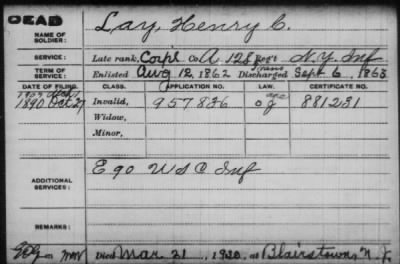 DEAD
NAME OF SOLDIER: Lay, Henry C.
SERVICE: Late rank, Corpl Co. A, 128 Reg't N.Y. Inf
TERM OF SERVICE: Enlisted Aug 12, 1862 Discharged Sept 6, 1863
DATE OF FILING. CLASS. APPLICATION NO. LAW. CERTIFICATE NO.
1890 Oct 27 Invalid, 957836 881231
Widow,
Minor,
ADDITIONAL SERVICES: E 90 U S C Inf
REMARKS:
Died Mar. 21, 1920, at Blairstown, N.J.